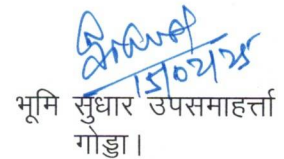 15/02/25
भूमि सुधार उपसमाहर्त्ता
गोड्डा।